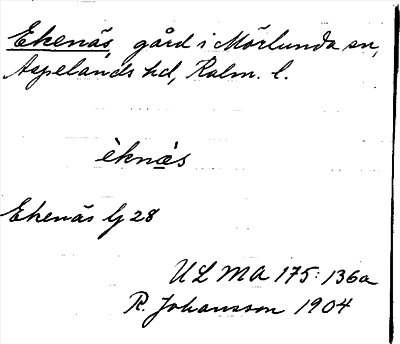 Ekenäs, gård i Mörlunda sn,
Aspelands hd, Kalm. l.
èknæs
Ekenäs G 28
ULMA 175:136a
R. Johansson 1904